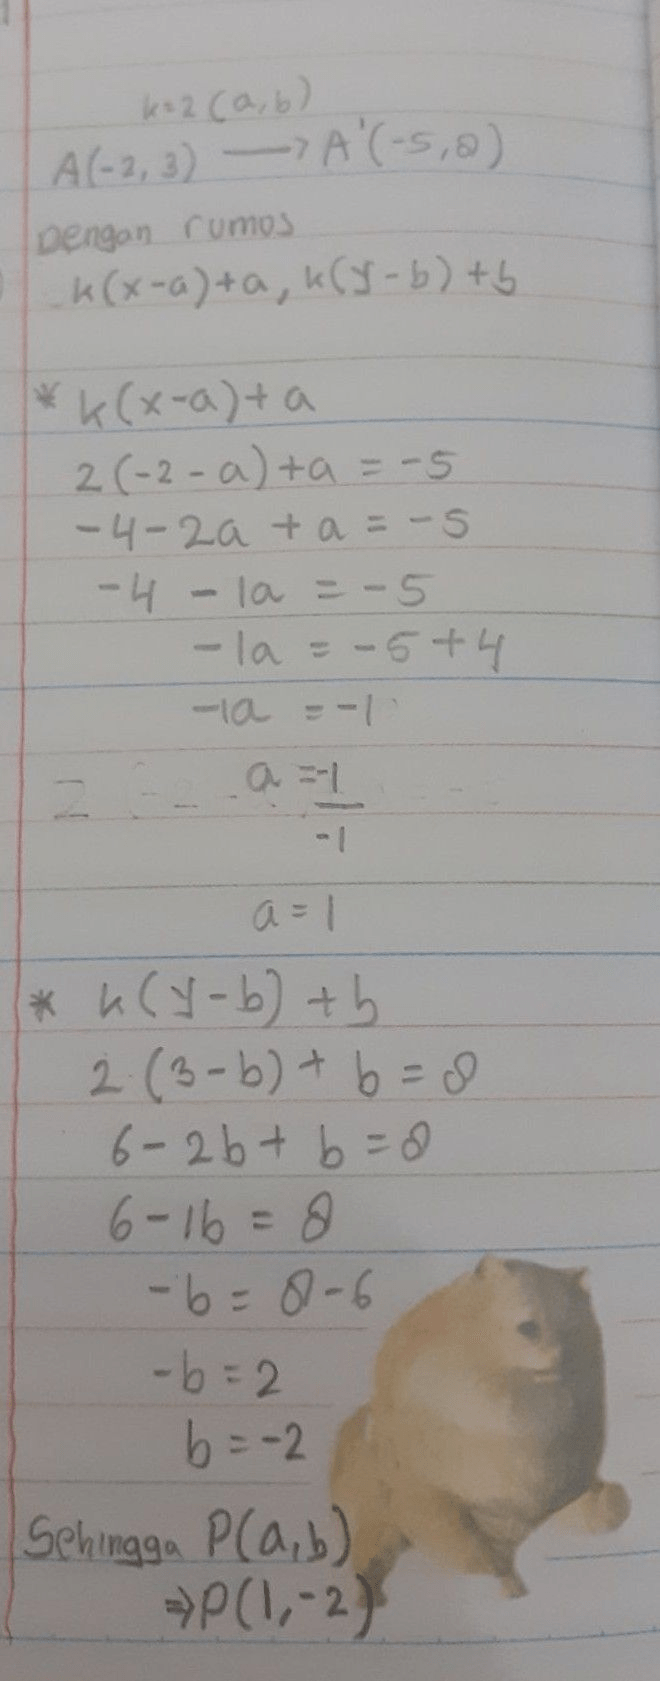 k=2 (a,b)
A(-2, 3) → A'(-5, 8)
Dengan rumos
k(x-a)+a, k(y-b)+b
* k(x-a)+a
2(-2-a)+a = -5
-4-2a+a = -5
-4 - 1a = -5
-1a = -5+4
-1a = -1
a = -1
-1
a = 1
* k(y-b)+b
2(3-b)+b = 8
6-2b+b = 8
6-1b = 8
-b = 8-6
-b = 2
b = -2
Sehingga P(a,b)
⇒ P(1,-2)